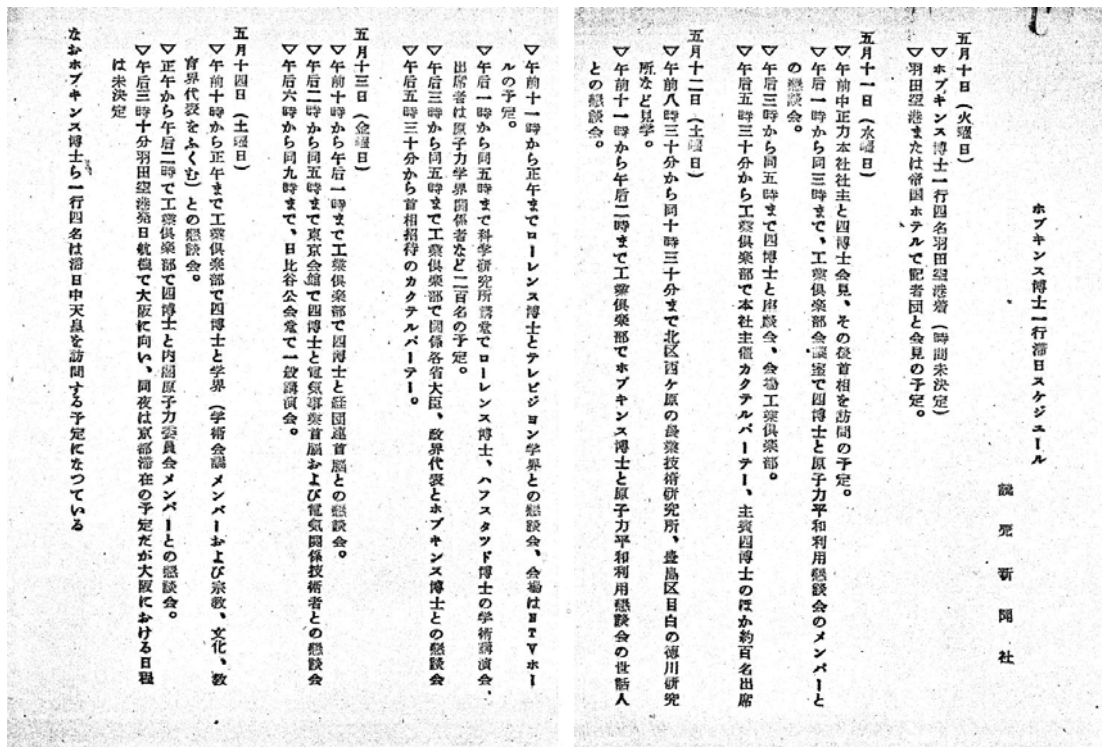 ホプキンス博士一行滞日スケジュール
読売新聞社
五月十日(火曜日)
▽ホプキンス博士一行四名羽田空港着(時間未決定)
▽羽田空港または帝国ホテルで記者団と会見の予定。
五月十一日(水曜日)
▽午前中正力本社社主と四博士会見、その後首相を訪問の予定。
▽午后一時から同三時まで、工業倶楽部会議室で四博士と原子力平和利用懇談会のメンバーと
の懇談会。
▽午后三時から同五時まで四博士と座談会、会場工業倶楽部。
▽午后五時三十分から工業倶楽部で本社主催カクテルパーテー、主賓四博士のほか約百名出席
五月十二日(土曜日)
▽午前八時三十分から同十時三十分まで北区西ケ原の農業技術研究所、豊島区目白の徳川研究
所など見学。
▽午前十一時から午后二時まで工業倶楽部でホプキンス博士と原子力平和利用懇談会の世話人
との懇談会。
▽午前十一時から正午までローレンス博士とテレビジョン学界との懇談会、会場はNTVホー
ルの予定。
▽午后一時から同五時まで科学研究所講堂でローレンス博士、ハフスタッド博士の学術講演会、
出席者は原子力学界関係者など二百名の予定。
▽午后三時から同五時まで工業倶楽部で関係各省大臣、政界代表とホプキンス博士との懇談会
▽午后五時三十分から首相招待のカクテルパーテー。
五月十三日(金曜日)
▽午前十時から午后一時まで工業倶楽部で四博士と経団連首脳との懇談会。
▽午后二時から同五時まで東京会館で四博士と電気事業首脳および電気関係技術者との懇談会
▽午后六時から同九時まで、日比谷公会堂で一般講演会。
五月十四日(土曜日)
▽午前十時から正午まで工業倶楽部で四博士と学界(学術会議メンバーおよび宗教、文化、教
育界代表をふくむ)との懇談会。
▽正午から午后二時で工業倶楽部で四博士と内閣原子力委員会メンバーとの懇談会。
▽午后三時十分羽田空港発日航機で大阪に向い、同夜は京都滞在の予定だが大阪における日程
は未決定
なおホプキンス博士ら一行四名は滞日中天皇を訪問する予定になつている